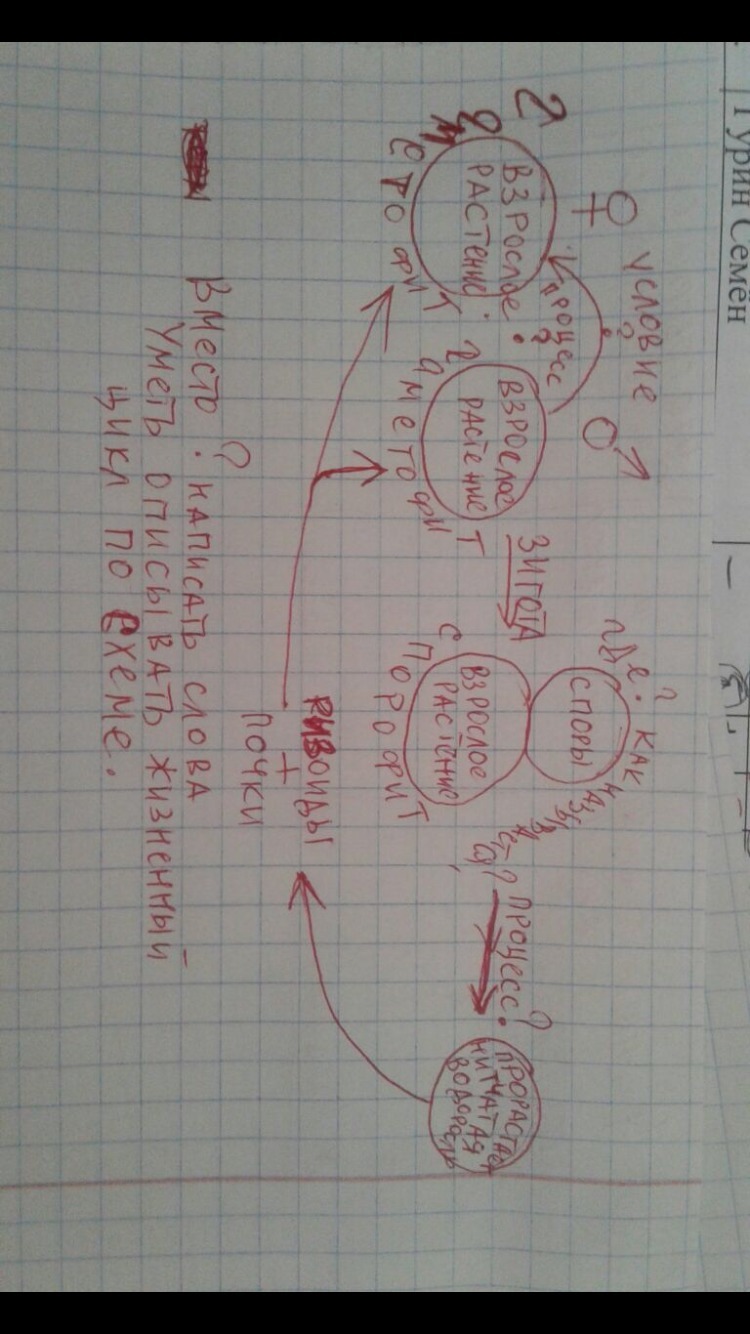 Гурин Семён
♀ условие ? ♂
процесс ?
ВЗРОСЛОЕ
РАСТЕНИЕ
ГАМЕТОФИТ
ВЗРОСЛОЕ
РАСТЕНИЕ
ГАМЕТОФИТ
ЗИГОТА
где? КАК
СПОРЫ
ВЗРОСЛОЕ
РАСТЕНИЕ
СПОРОФИТ
ПРОЦЕСС?
ПРОРАСТАЕТ
НИТЧАТАЯ
ВОДОРОСЛЬ
РИЗОИДЫ
+
ПОЧКИ
Вместо ? написать слова
Уметь описывать жизненный
цикл по схеме.